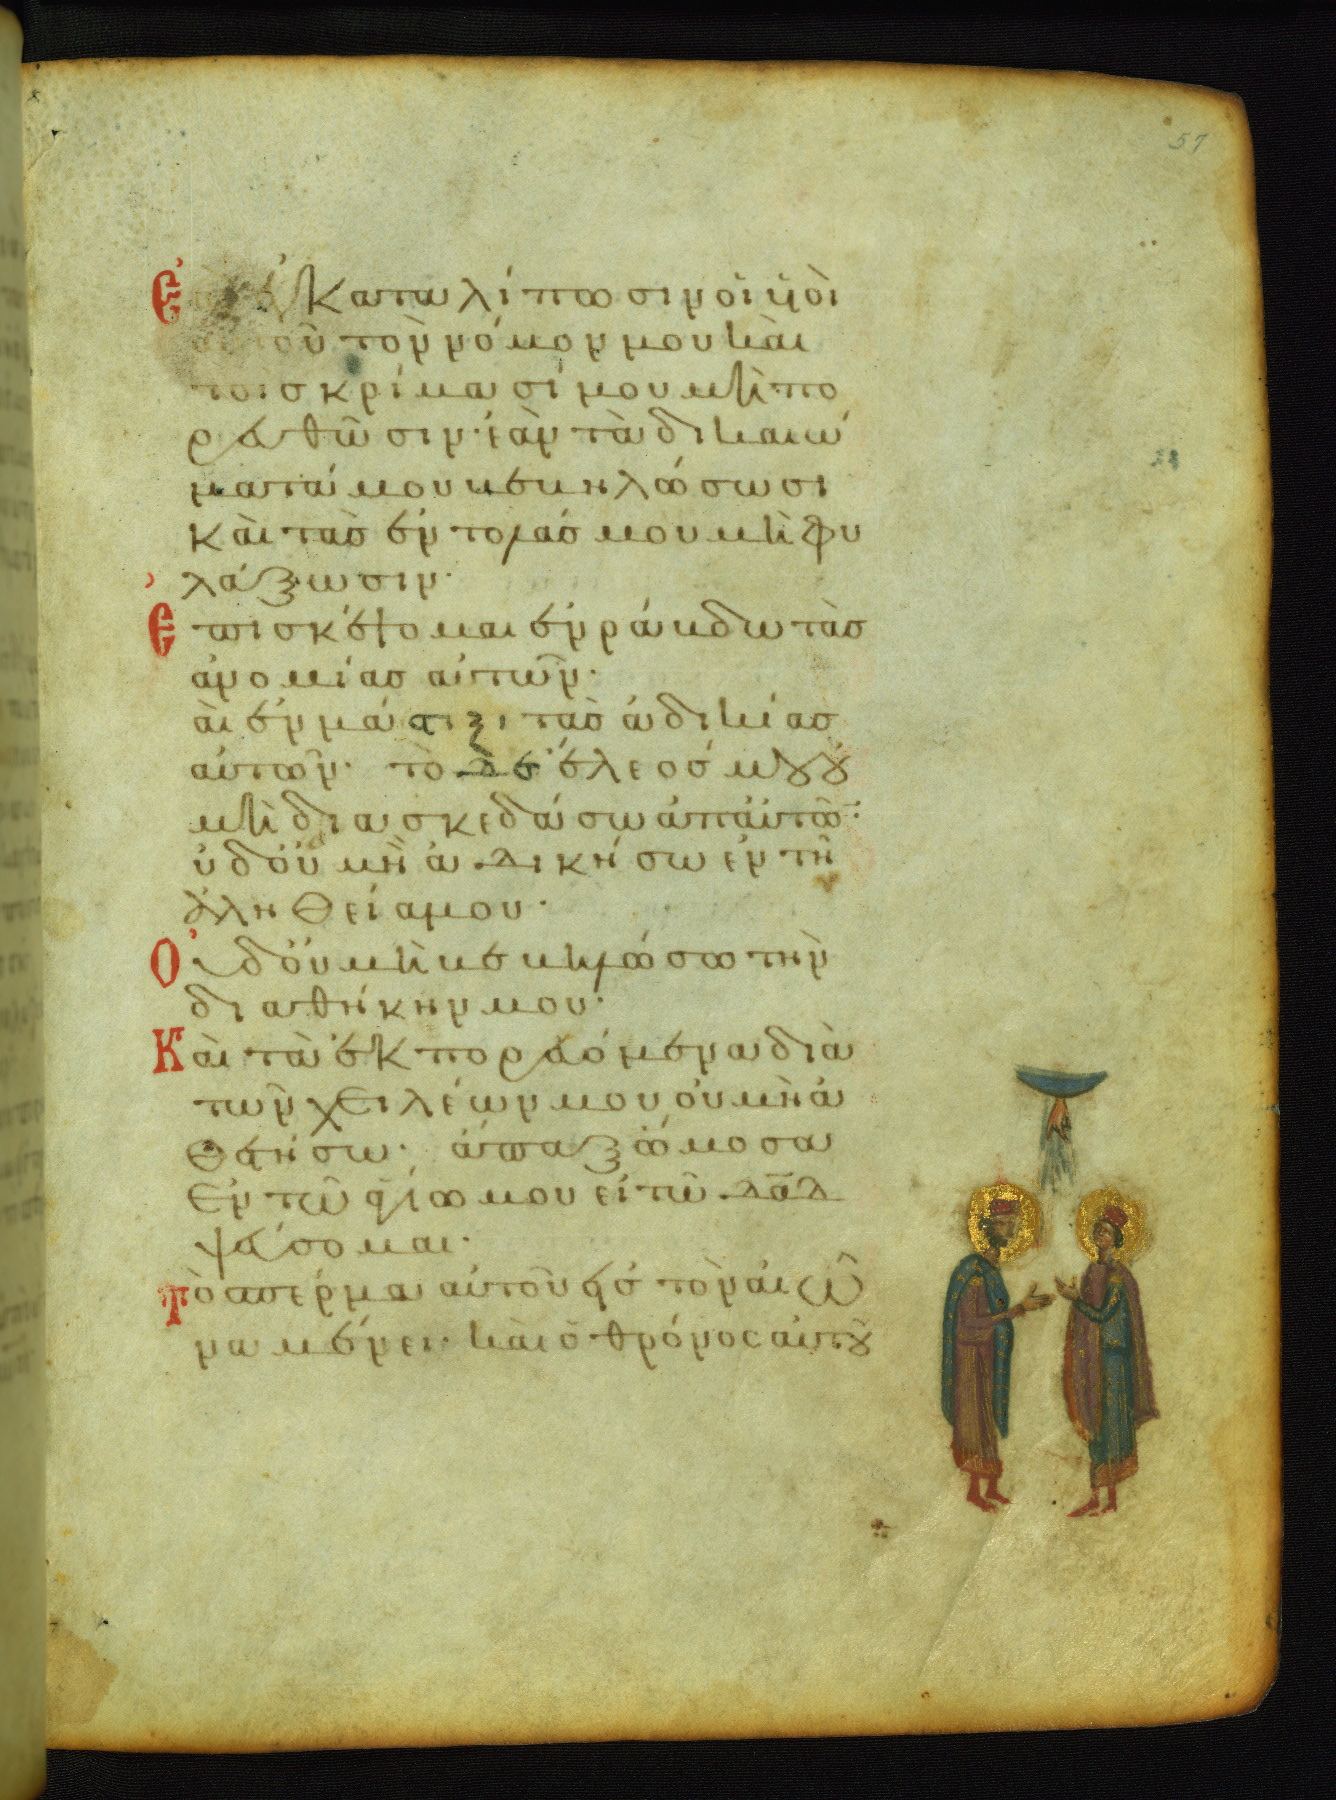 57
Ἐὰν ἐγκαταλίπωσιν οἱ υἱοὶ
αὐτοῦ τὸν νόμον μου καὶ
τοῖς κρίμασί μου μὴ πο
ρευθῶσιν· ἐὰν τὰ δικαιώ
ματά μου βεβηλώσωσι
καὶ τὰς ἐντολάς μου μὴ φυ
λάξωσιν·
Ἐπισκέψομαι ἐν ῥάβδω τὰς
ἀνομίας αὐτῶν·
αι ἐν μάστιξι τὰς ἀδικίας
αὐτῶν· τὸ δὲ ἔλεός μου οὐ
μὴ διασκεδάσω ἀπ αὐτῶ·
ὐδ οὐ μὴ ἀδικήσω ἐν τῆ
ἀληθεία μου·
Οὐδ οὐ μὴ βεβηλώσω τὴν
διαθήκην μου·
Καὶ τὰ ἐκπορευόμενα διὰ
τῶν χειλέων μου οὐ μὴ ἀ
θετήσω· ἅπαξ ὤμοσα
ἐν τῶ ἁγίω μου εἰ τῶ δαδ
ψεύσομαι·
Τὸ σπέρμα αὐτοῦ εἰς τὸν αἰῶ
να μένει· καὶ ὁ θρόνος αὐτοῦ